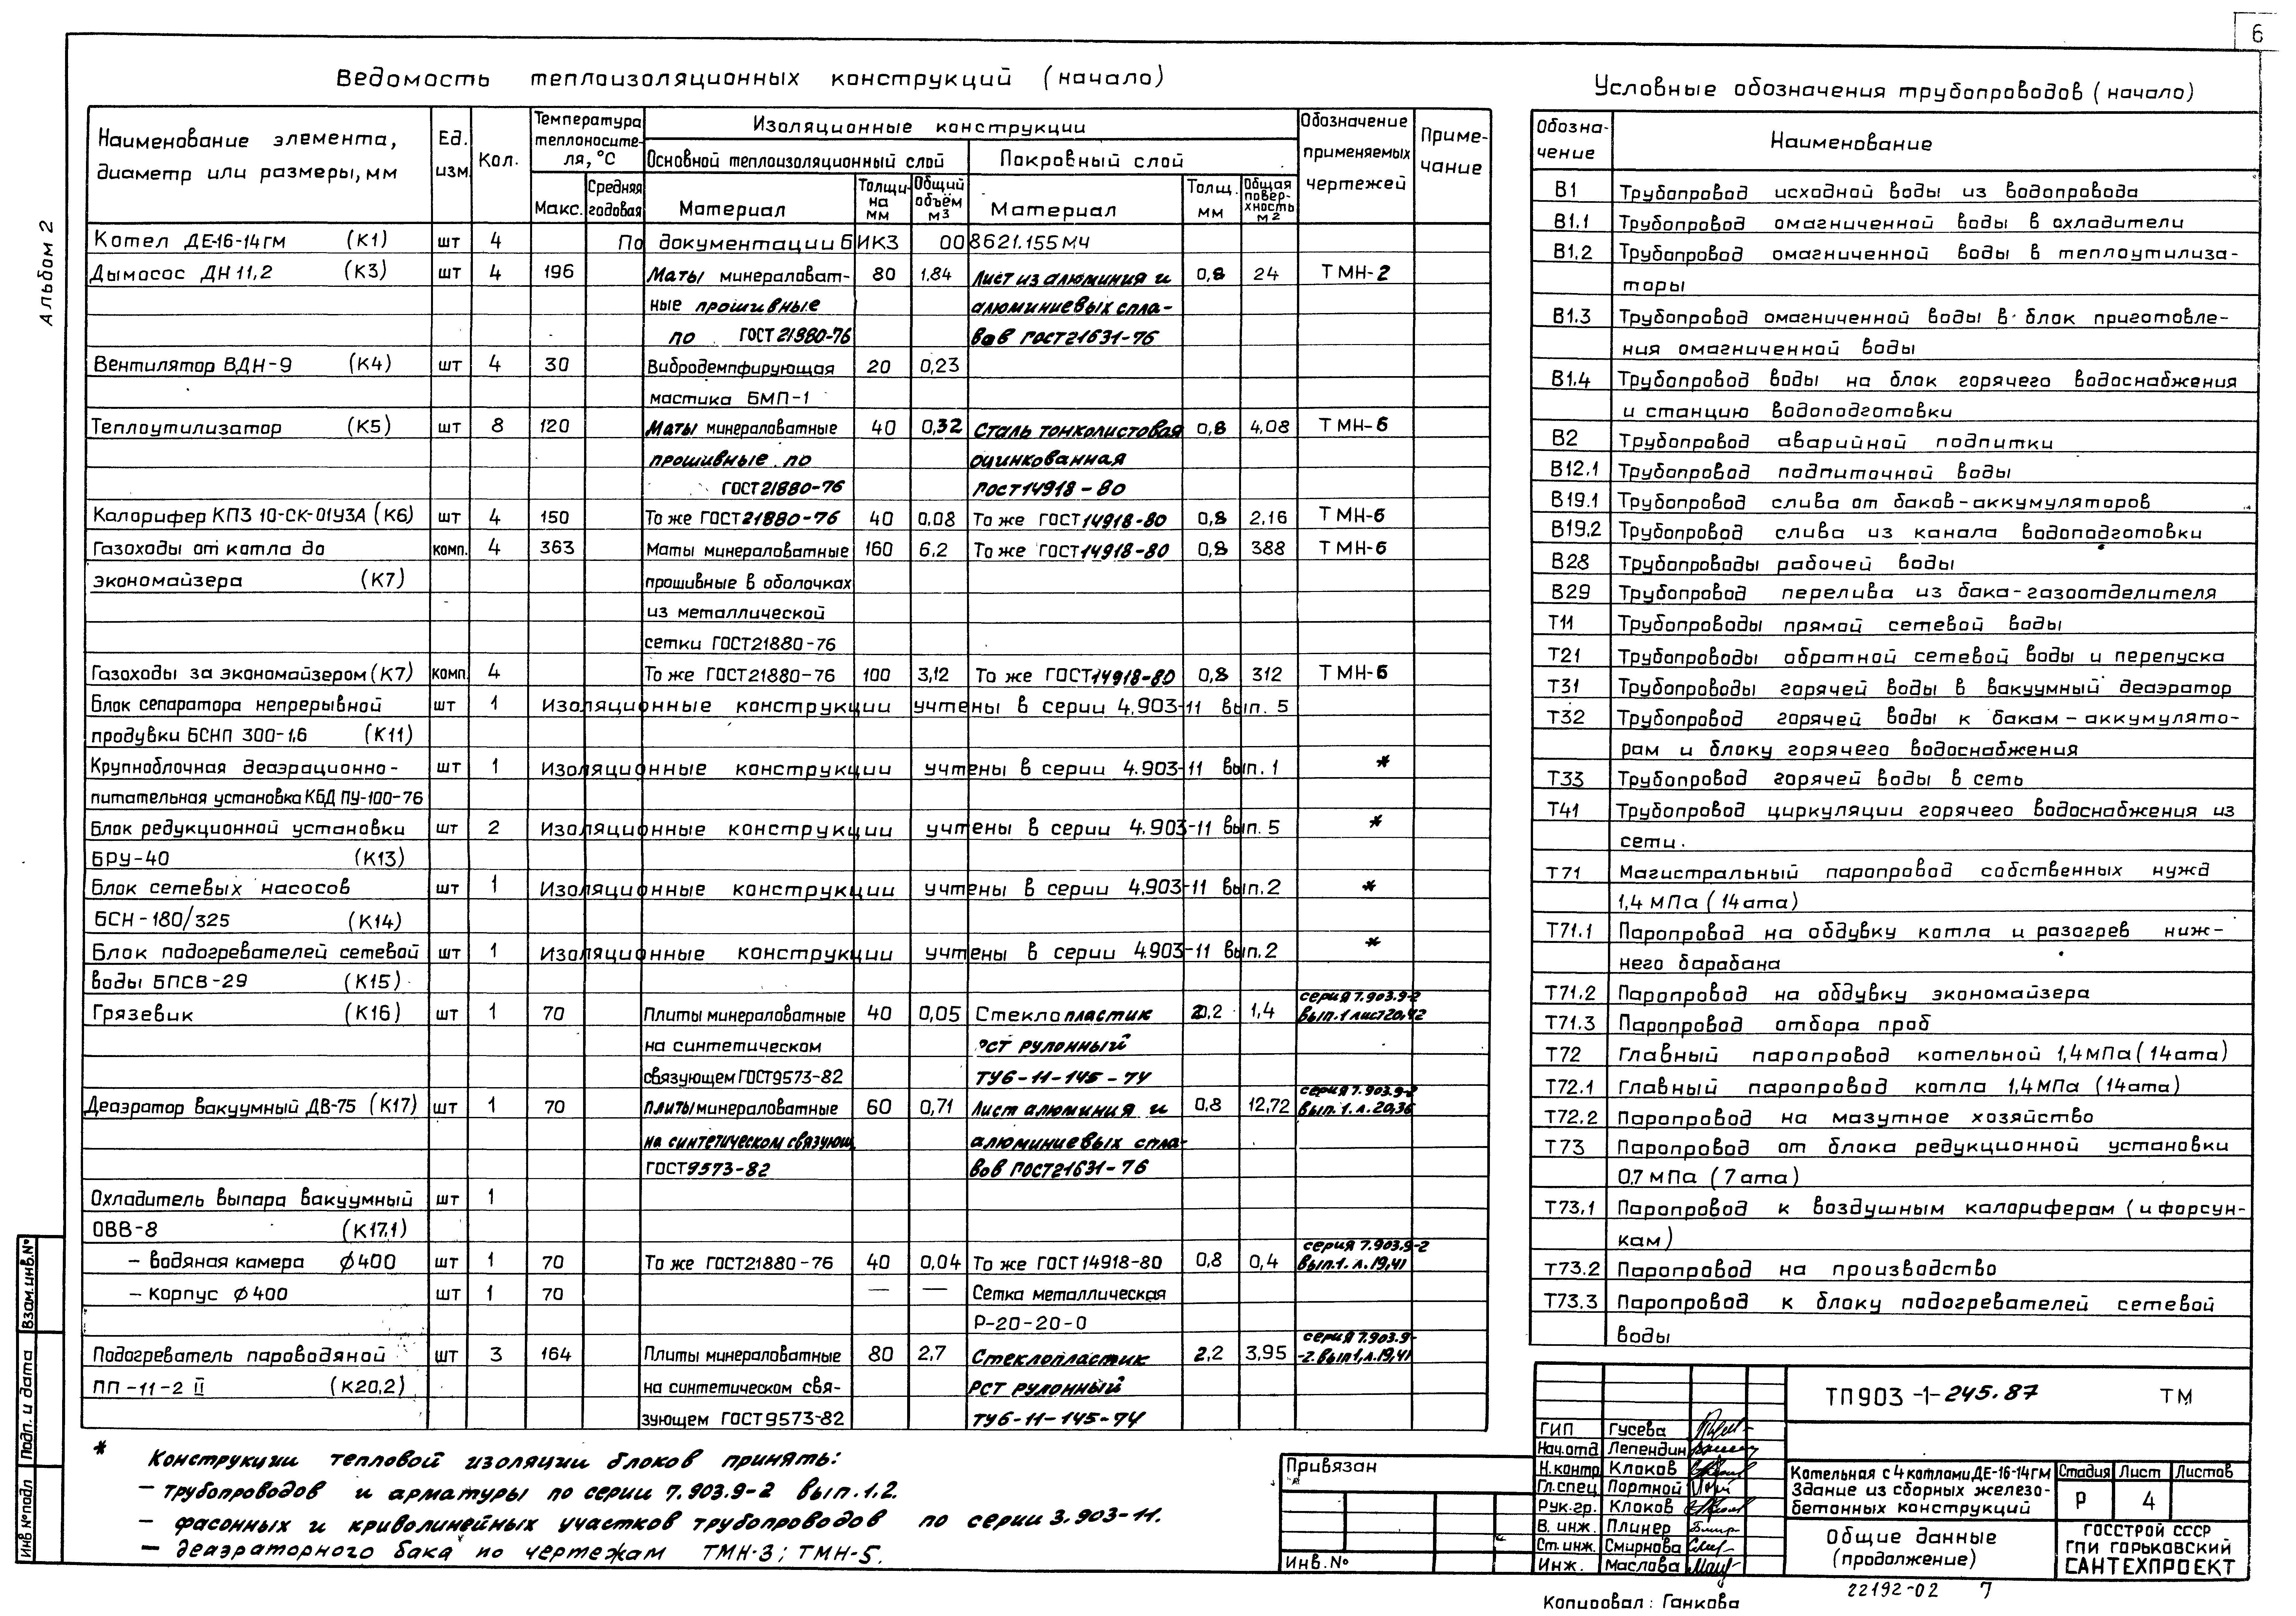 6
Альбом 2
Ведомость теплоизоляционных конструкций (начало)
Наименование элемента, диаметр или размеры, мм
Ед. изм.
Кол.
Температура теплоносителя, °С
Макс.
Средняя годовая
Изоляционные конструкции
Основной теплоизоляционный слой
Покровный слой
Материал
Толщина мм
Общий объём м3
Материал
Толщ. мм
Общая поверхность м2
Обозначение применяемых чертежей
Примечание
Котел ДЕ-16-14гм (К1) шт 4 По документации БИКЗ 008621.155МЧ
Дымосос ДН 11,2 (К3) шт 4 196 Маты минераловат- 80 1.84 Лист из алюминия и 0,8 24 ТМН-2
ные прошивные алюминиевых спла-
по ГОСТ 21880-76 вов ГОСТ 21631-76
Вентилятор ВДН-9 (К4) шт 4 30 Вибродемпфирующая 20 0,23
мастика БМП-1
Теплоутилизатор (К5) шт 8 120 Маты минераловатные 40 0,32 Сталь тонколистовая 0,8 4,08 ТМН-6
прошивные по оцинкованная
ГОСТ 21880-76 ГОСТ 14918-80
Калорифер КПЗ 10-СК-01УЗА (К6) шт 4 150 То же ГОСТ 21880-76 40 0,08 То же ГОСТ 14918-80 0,8 2,16 ТМН-6
Газоходы от котла до комп. 4 363 Маты минераловатные 160 6,2 То же ГОСТ 14918-80 0,8 388 ТМН-6
экономайзера (К7) прошивные в оболочках
из металлической
сетки ГОСТ 21880-76
Газоходы за экономайзером (К7) комп. 4 То же ГОСТ 21880-76 100 3,12 То же ГОСТ 14918-80 0,8 312 ТМН-6
Блок сепаратора непрерывной шт 1 Изоляционные конструкции учтены в серии 4.903-11 вып. 5
продувки БСНП 300-1,6 (К11)
Крупноблочная деаэрационно- шт 1 Изоляционные конструкции учтены в серии 4.903-11 вып. 1 *
питательная установка КБДПУ-100-76
Блок редукционной установки шт 2 Изоляционные конструкции учтены в серии 4.903-11 вып. 5 *
БРУ-40 (К13)
Блок сетевых насосов шт 1 Изоляционные конструкции учтены в серии 4.903-11 вып. 2 *
БСН-180/325 (К14)
Блок подогревателей сетевой шт 1 Изоляционные конструкции учтены в серии 4.903-11 вып. 2 *
воды БПСВ-29 (К15)
Грязевик (К16) шт 1 70 Плиты минераловатные 40 0,05 Стеклопластик 2,2 1,4 серия 7.903.9-2 вып. 1 лист 20,42
на синтетическом РСТ рулонный
связующем ГОСТ 9573-82 ТУ6-11-145-74
Деаэратор вакуумный ДВ-75 (К17) шт 1 70 Плиты минераловатные 60 0,71 Лист алюминия и 0,8 12,72 серия 7.903.9-2 вып. 1. л. 20,36
на синтетическом связующ. алюминиевых спла-
ГОСТ 9573-82 вов ГОСТ 21631-76
Охладитель выпара вакуумный шт 1
ОВВ-8 (К17,1)
- водяная камера ф400 шт 1 70 То же ГОСТ 21880-76 40 0,04 То же ГОСТ 14918-80 0,8 0,4 серия 7.903.9-2 вып. 1. л. 19,41
- корпус ф400 шт 1 70 — — Сетка металлическая
Р-20-20-0
Подогреватель пароводяной шт 3 164 Плиты минераловатные 80 2,7 Стеклопластик 2,2 3,95 серия 7.903.9-2. вып 1, л. 19,41
ПП-11-2 II (К20,2) на синтетическом свя- РСТ рулонный
зующем ГОСТ 9573-82 ТУ6-11-145-74
* Конструкции тепловой изоляции блоков принять:
- трубопроводов и арматуры по серии 7.903.9-2 вып. 1.2.
- фасонных и криволинейных участков трубопроводов по серии 3.903-11.
- деаэраторного бака по чертежам ТМН-3; ТМН-5.
Условные обозначения трубопроводов (начало)
Обозначение Наименование
В1 Трубопровод исходной воды из водопровода
В1.1 Трубопровод омагниченной воды в охладители
В1.2 Трубопровод омагниченной воды в теплоутилиза-
торы
В1.3 Трубопровод омагниченной воды в блок приготовле-
ния омагниченной воды
В1.4 Трубопровод воды на блок горячего водоснабжения
и станцию водоподготовки
В2 Трубопровод аварийной подпитки
В12.1 Трубопровод подпиточной воды
В19.1 Трубопровод слива от баков-аккумуляторов
В19.2 Трубопровод слива из канала водоподготовки
В28 Трубопроводы рабочей воды
В29 Трубопровод перелива из бака-газоотделителя
Т11 Трубопроводы прямой сетевой воды
Т21 Трубопроводы обратной сетевой воды и перепуска
Т31 Трубопроводы горячей воды в вакуумный деаэратор
Т32 Трубопровод горячей воды к бакам-аккумулято-
рам и блоку горячего водоснабжения
Т33 Трубопровод горячей воды в сеть
Т41 Трубопровод циркуляции горячего водоснабжения из
сети.
Т71 Магистральный паропровод собственных нужд
1,4 МПа (14 ата)
Т71.1 Паропровод на обдувку котла и разогрев ниж-
него барабана
Т71.2 Паропровод на обдувку экономайзера
Т71.3 Паропровод отбора проб
Т72 Главный паропровод котельной 1,4 МПа (14 ата)
Т72.1 Главный паропровод котла 1,4 МПа (14 ата)
Т72.2 Паропровод на мазутное хозяйство
Т73 Паропровод от блока редукционной установки
0,7 МПа (7 ата)
Т73.1 Паропровод к воздушным калориферам (и форсун-
кам)
Т73.2 Паропровод на производство
Т73.3 Паропровод к блоку подогревателей сетевой
воды
Взам. инв. №
Подп. и дата
Инв № подл
Привязан
Инв. №
ГИП Гусева
Нач. отд Лепендин
Н. контр Клоков
Гл. спец. Портной
Рук. гр. Клоков
В. инж. Плинер
Ст. инж. Смирнова
Инж. Маслова
ТП903-1-245.87 ТМ
Котельная с 4 котлами ДЕ-16-14ГМ
Здание из сборных железо-
бетонных конструкций
Стадия Лист Листов
Р 4
Общие данные
(продолжение)
ГОССТРОЙ СССР
ГПИ ГОРЬКОВСКИЙ
САНТЕХПРОЕКТ
22192-02 7
Копировал: Ганкова